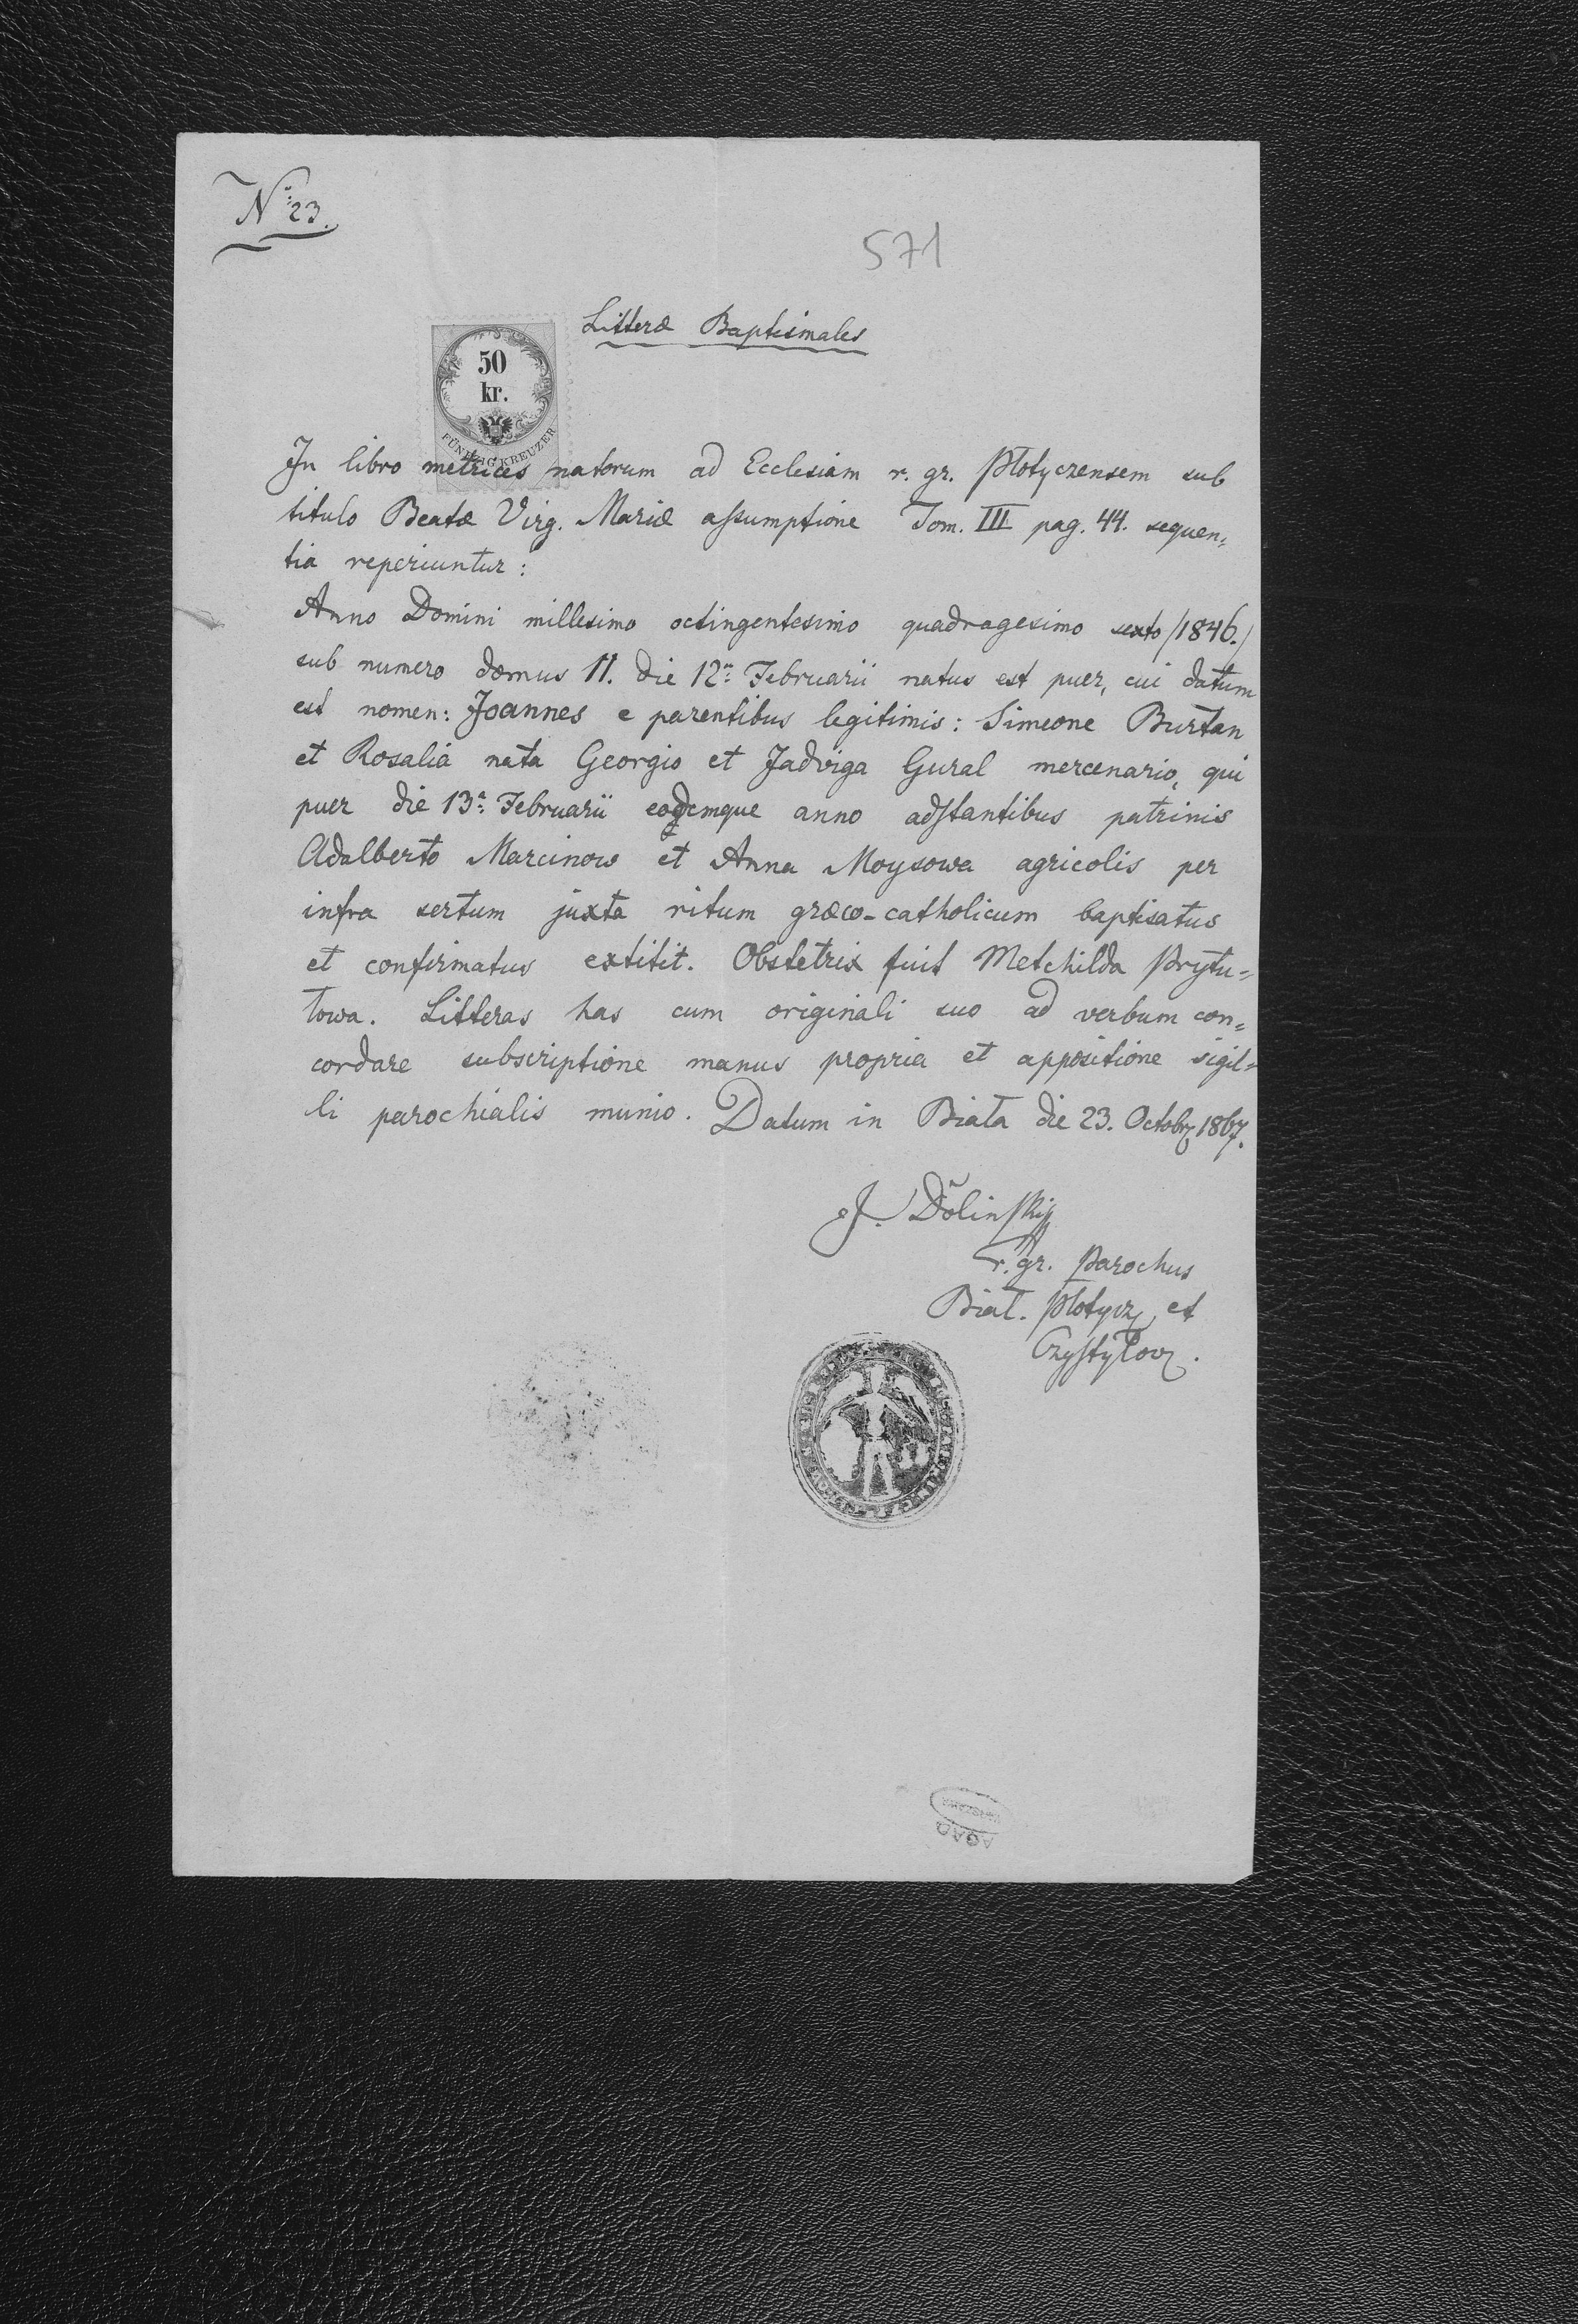 N<sup>o</sup>: 23.
571
Litteræ Baptismales
50
kr.
FÜNFZIG KREUZER
In libro metrices natorum ad Ecclesiam r. gr. Płotyczensem sub
titulo Beatæ Virg. Mariæ assumptione Tom. III pag. 44. sequen=
tia reperiuntur:
Anno Domini millesimo octingentesimo quadragesimo sexto /1846./
sub numero domus 11. die 12a: Februarii natus est puer, cui datum
est nomen: Joannes e parentibus legitimis: Simeone Burtan
et Rosalia nata Georgio et Jadviga Gural mercenario, qui
puer die 13a: Februarii eodemque anno adstantibus patrinis
Adalberto Marcinow et Anna Moysowa agricolis per
infra sertum juxta ritum græco-catholicum baptisatus
et confirmatus extitit. Obstetrix fuit Metchilda Prytu=
łowa. Litteras has cum originali suo ad verbum con=
cordare subscriptione manus propria et appositione sigil=
li parochialis munio. Datum in Biała die 23. Octobr 1867.
J. Dolinskij
r. gr. Parochus
Biał. Płotycz et
Czystyłow.
AGAD